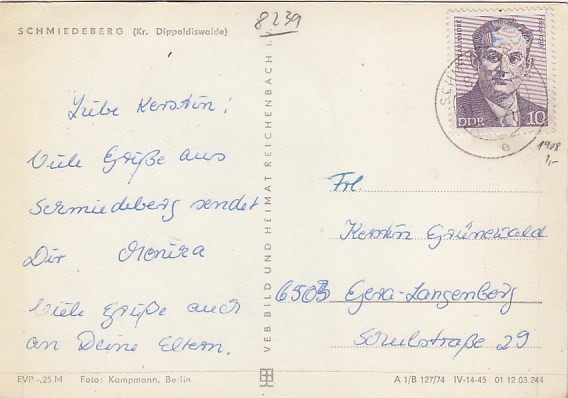 8239
SCHMIEDEBERG (Kr. Dippoldiswalde)
Liebe Kerstin!
Viele Grüße aus
Schmiedeberg sendet
Dir Monika
Viele Grüße auch
an Deine Eltern.
EVP -,25 M Foto: Kampmann, Berlin
VEB BILD UND HEIMAT REICHENBACH i.
DDR 10
e
1908
1,-
Frl.
Kerstin Grünewald
6503 Gera-Langenberg
Schulstraße 29
A 1/B 127/74 IV-14-45 01 12 03 244